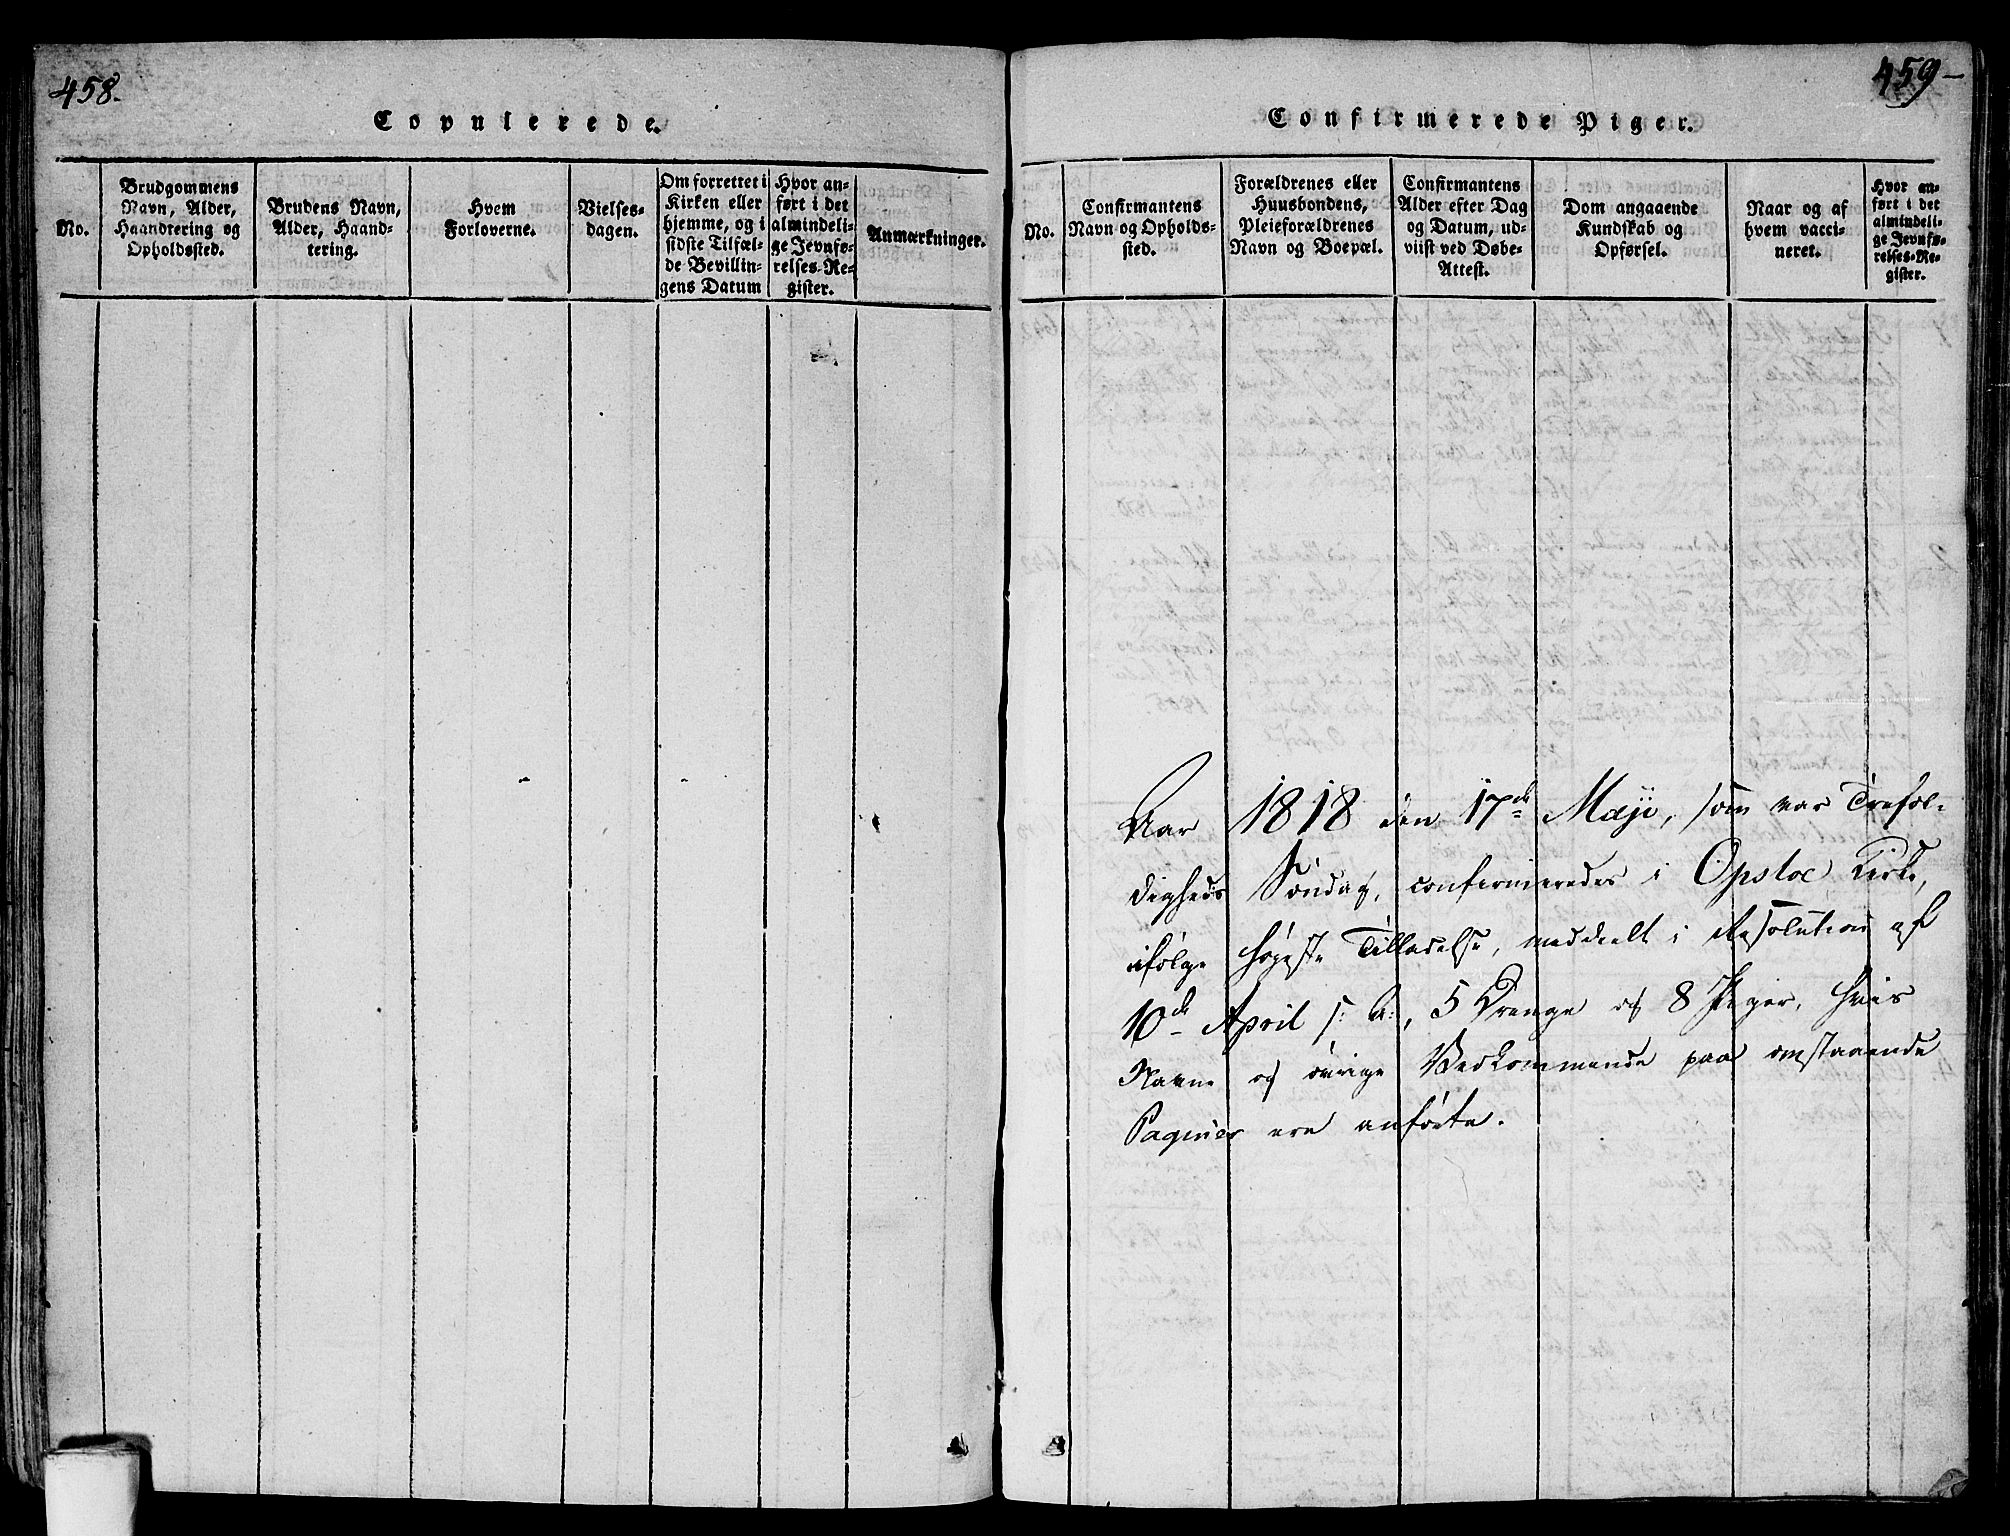 458.
Copulerede.
No.
Brudgommens
Navn, Alder,
Haandtering og
Opholdssted.
Brudens Navn,
Alder, Haand-
tering.
Hvem
Forloverne.
Vielses-
dagen.
Om forrettet i
Kirken eller
hjemme, og i
sidste Tilfæl-
de Bevillin-
gens Datum
Hvor an-
ført i det
almindeli-
ge Jevnfø-
relses-Re-
gister.
Anmærkninger.
459
Confirmerede Piger.
No.
Confirmantens
Navn og Opholds-
sted.
Forældrenes eller
Huusbondens,
Pleieforældrenes
Navn og Boepæl.
Confirmantens
Alder efter Dag
og Datum, ud-
viist ved Døbe-
Attest.
Dom angaaende
Kundskab og
Opførsel.
Naar og af
hvem vacci-
neret.
Hvor an-
ført i det
almindeli-
ge Jevnfø-
relses-Re-
gister.
Aar 1818 den 17de Maji, som var Trefol-
digheds Søndag, confirmeredes i Opsloe Kirke,
ifölge höyeste Tilladelse, meddeelt i Resolution af
10de April s: A:, 5 Drenge og 8 Piger, hvis
Navne og övrige Vedkommende paa omstaaende
Paginer ere anförte.